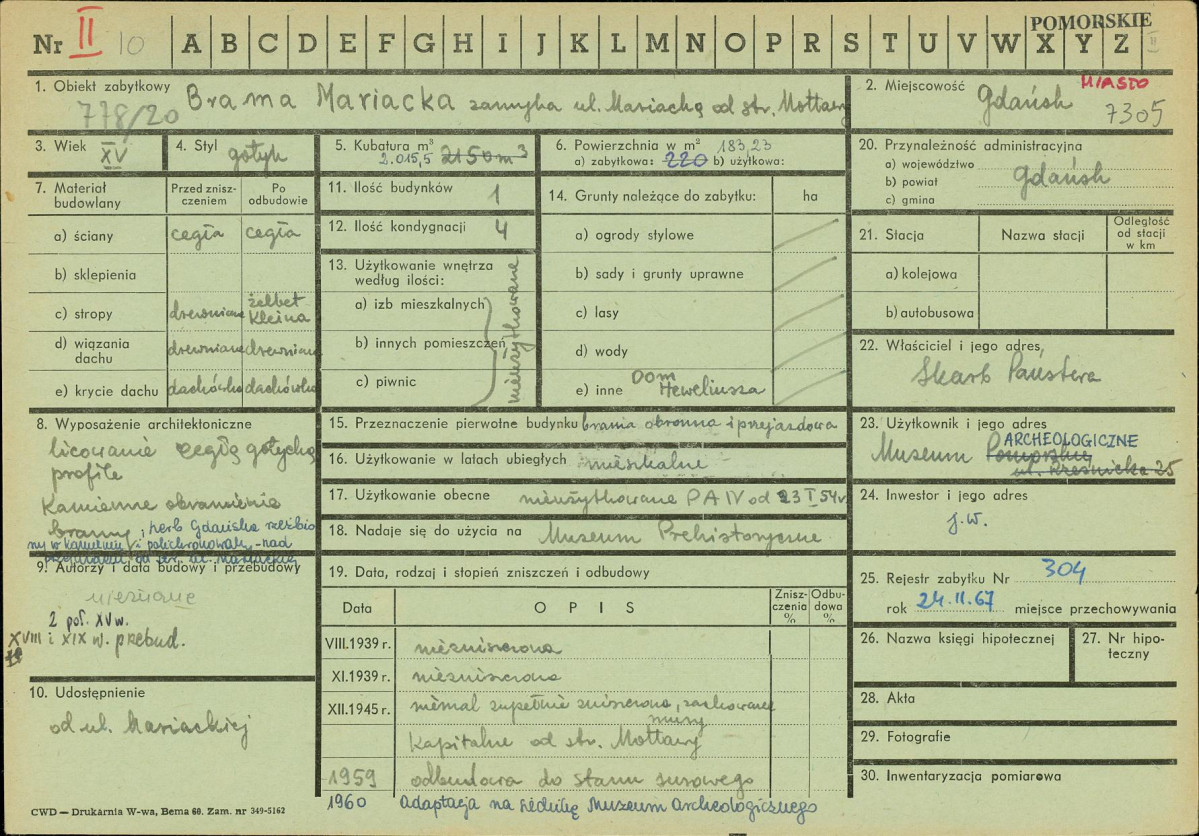 POMORSKIE
Nr II 10 A B C D E F G H I J K L M N O P R S T U V W X Y Z II
1. Obiekt zabytkowy Brama Mariacka zamyka ul. Mariacką od str. Motławy
778/20
2. Miejscowość Gdańsk MIASTO
7305
3. Wiek XV
4. Styl gotyk
5. Kubatura m³
2.015,5 2150 m³
6. Powierzchnia w m² 183,23
a) zabytkowa: 220 b) użytkowa:
20. Przynależność administracyjna
a) województwo
b) powiat Gdańsk
c) gmina
7. Materiał budowlany
Przed zniszczeniem
Po odbudowie
a) ściany cegła cegła
b) sklepienia
c) stropy drewniane żelbet Kleina
d) wiązania dachu drewniane drewniane
e) krycie dachu dachówka dachówka
11. Ilość budynków 1
12. Ilość kondygnacji 4
13. Użytkowanie wnętrza według ilości:
a) izb mieszkalnych
b) innych pomieszczeń
c) piwnic
nieużytkowane
14. Grunty należące do zabytku: ha
a) ogrody stylowe
b) sady i grunty uprawne
c) lasy
d) wody
e) inne Dom Heweliusza
21. Stacja
Nazwa stacji
Odległość od stacji w km
a) kolejowa
b) autobusowa
22. Właściciel i jego adres,
Skarb Państwa
8. Wyposażenie architektoniczne
licowanie cegłą gotycką
profile
Kamienne obramienia
bramy; herb Gdańska rzeźbio
ny w kamieniu i polichromowany - nad
przejazdem od str. ul. Mariackiej
15. Przeznaczenie pierwotne budynku brama obronna i przejazdowa
16. Użytkowanie w latach ubiegłych mieszkalne
17. Użytkowanie obecne nieużytkowane PA IV od 23 I 54 r
18. Nadaje się do użycia na Museum Prehistoryczne
23. Użytkownik i jego adres
Museum Pomorskie ARCHEOLOGICZNE
ul. Rzeźnicka 25
24. Inwestor i jego adres
j.w.
9. Autorzy i data budowy i przebudowy
nieznane
2 poł. XV w.
XVIII i XIX w. przebud.
10. Udostępnienie
od ul. Mariackiej
19. Data, rodzaj i stopień zniszczeń i odbudowy
Data
OPIS
Zniszczenia %
Odbudowa %
VIII.1939 r. niezniszczona
XI.1939 r. niezniszczona
XII.1945 r. niemal zupełnie zniszczona, zachowane
mury
Kapitalne od str. Motławy
1959 odbudowa do stanu surowego
1960 adaptacja na siedzibę Muzeum Archeologicznego
25. Rejestr zabytku Nr 304
rok 24.II.67 miejsce przechowywania
26. Nazwa księgi hipotecznej
27. Nr hipoteczny
28. Akta
29. Fotografie
30. Inwentaryzacja pomiarowa
CWD — Drukarnia W-wa, Bema 60. Zam. nr 349-5162